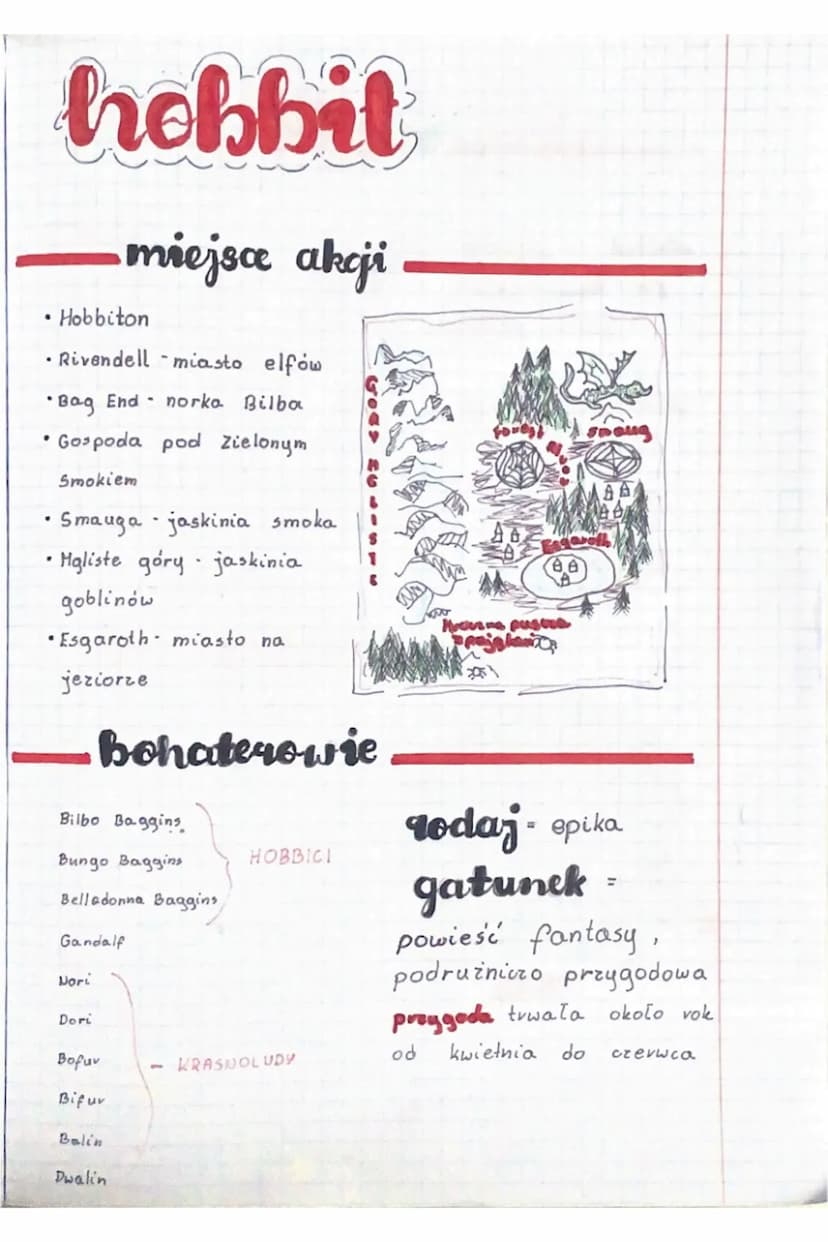 hobbit
miejsce akcji
• Hobbiton
• Rivendell - miasto elfów
• Bag End - norka Bilba
• Gospoda pod Zielonym
Smokiem
• Smauga - jaskinia smoka
• Mgliste góry - jaskinia
goblinów
• Esgaroth - miasto na
jeziorze
GÓRY MGLISTE
Forest
Smaug
Esgaroth
z pająkami
bohaterowie
Bilbo Baggins
Bungo Baggins
Belladonna Baggins
HOBBICI
Gandalf
Nori
Dori
Bofur
Bifur
Balin
Dwalin
- KRASNOLUDY
rodzaj - epika
gatunek =
powieść fantasy,
podrużniczo przygodowa
przygoda trwała około rok
od kwietnia do czerwca